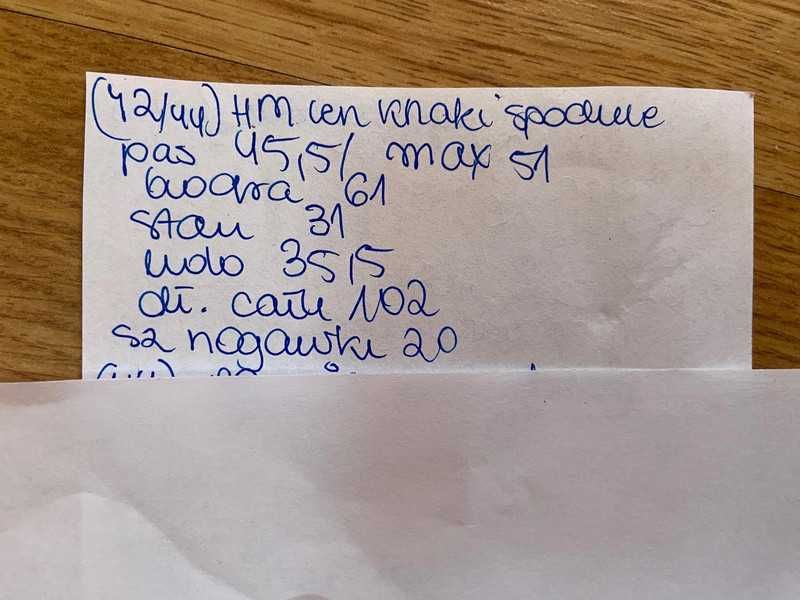 (42/44) HM len khaki spodnie
pas 45,5/ max 51
biodra 61
stan 31
udo 35,5
dł. całk 102
sz nogawki 20